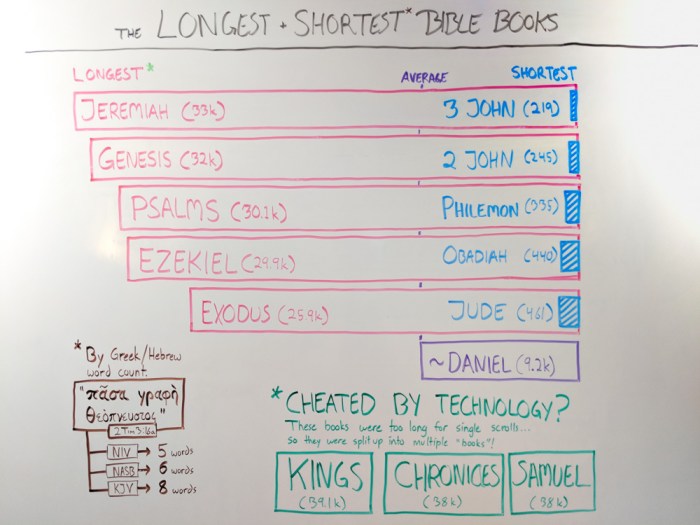 THE LONGEST + SHORTEST* BIBLE BOOKS
LONGEST* AVERAGE SHORTEST
JEREMIAH (33k) 3 JOHN (219)
GENESIS (32k) 2 JOHN (245)
PSALMS (30.1k) PHILEMON (335)
EZEKIEL (29.9k) OBADIAH (440)
EXODUS (25.9k) JUDE (461)
~DANIEL (9.2k)
*By Greek/Hebrew
word count.
"πᾶσα γραφὴ
θεόπνευστος"
2 Tim 3:16a
NIV → 5 words
NASB → 6 words
KJV → 8 words
*CHEATED BY TECHNOLOGY?
These books were too long for single scrolls...
so they were split up into multiple "books"!
KINGS CHRONICES SAMUEL
(39.1k) (38k) (38k)